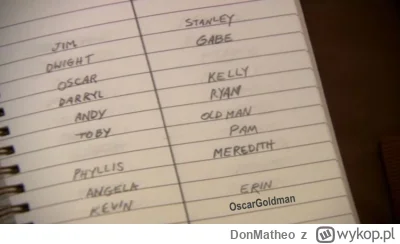 JIM
DWIGHT
OSCAR
DARRYL
ANDY
TOBY
PHYLLIS
ANGELA
KEVIN
STANLEY
GABE
KELLY
RYAN
OLD MAN
PAM
MEREDITH
ERIN
OscarGoldman
DonMatheo z wykop.pl